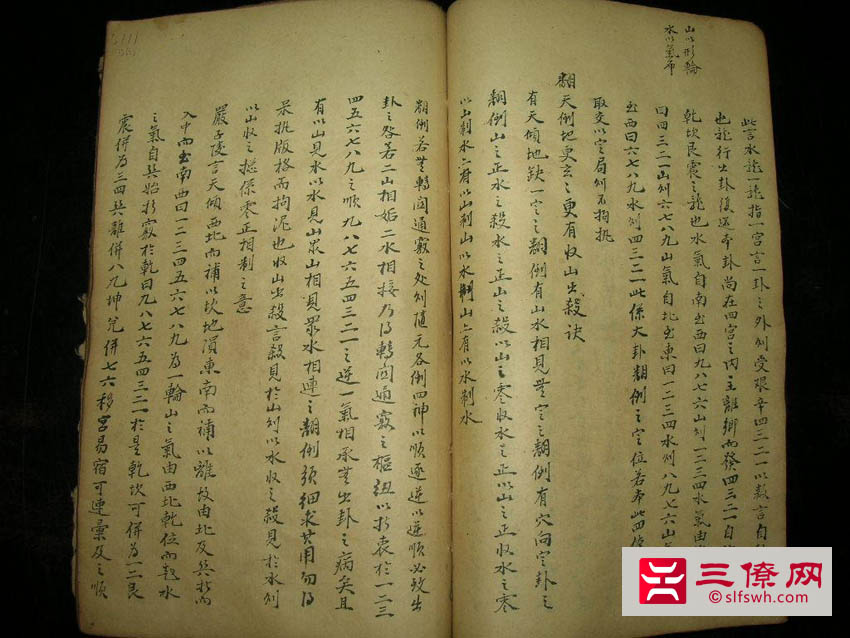 山以形輪
水以氣布
此言水龍一龍指一宮言一卦之外則受艱辛四三二一以数言自
也龍行出卦後還本卦尚在四宮之內主離鄉而發四三二一自
乾坎艮震之龍也水氣自南出西曰九八七六山則一二三四水氣由
曰四三二一山則六七八九山氣自北出東曰一二三四水則九八七六山
出西曰六七八九水則四三二一此係大卦翻倒之定位若本此四
取交以定局則不拘執
翻天倒地更玄玄更有收山出殺訣
有天傾地缺一定之翻倒有山水相見無定之翻倒有穴向定卦之
翻倒山之正水之殺水之正山之殺以山之零收水之正以山之正收水之零
以山制水亦有以山制山以水制山亦有以水制水
翻倒若無轉関通竅之处則随元各倒四神以順逐逆以逆順必致出
卦之咎若二山相姤二水相接乃得轉関通竅之樞紐以折衷於一二三
四五六七八九之順九八七六五四三二一之逆一氣相承無出卦之病矣且
有以山見水以水見山眾山相見眾水相連之翻倒須細求其用勿得
呆执版格而拘泥也收山出殺言殺見於山則以水收之殺見於水則
以山收之摠係零正相制之意
嚴子陵言天傾西北而補以坎地濵東南而補以離故由北及巽折而
入中而出南西曰一二三四五六七八九為一輪山之氣由西北乾位而起水
之氣自巽始行竅於乾曰九八七六五四三二一於是乾坎可併為一二艮
震併為三四巽離併八九坤兌併七六移宮易宿可連彙及之順
三僚网
slfswh.com